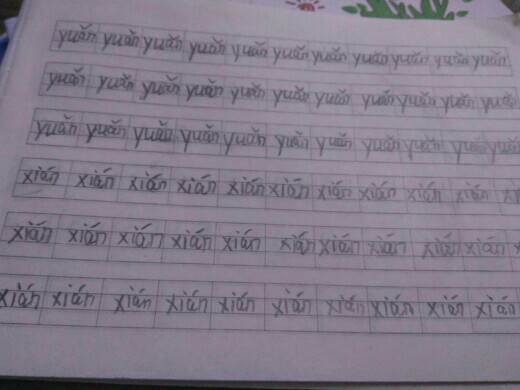 yuǎn yuǎn yuǎn yuǎn yuǎn yuǎn yuǎn yuǎn yuǎn yuǎn yuǎn
yuǎn yuǎn yuǎn yuǎn yuǎn yuǎn yuǎn yuǎn yuǎn yuǎn yuǎn
yuǎn yuǎn yuǎn yuǎn yuǎn yuǎn yuǎn yuǎn yuǎn yuǎn yuǎn
xián xián xián xián xián xián xián xián xián xián
xián xián xián xián xián xián xián xián xián xián
xián xián xián xián xián xián xián xián xián xián